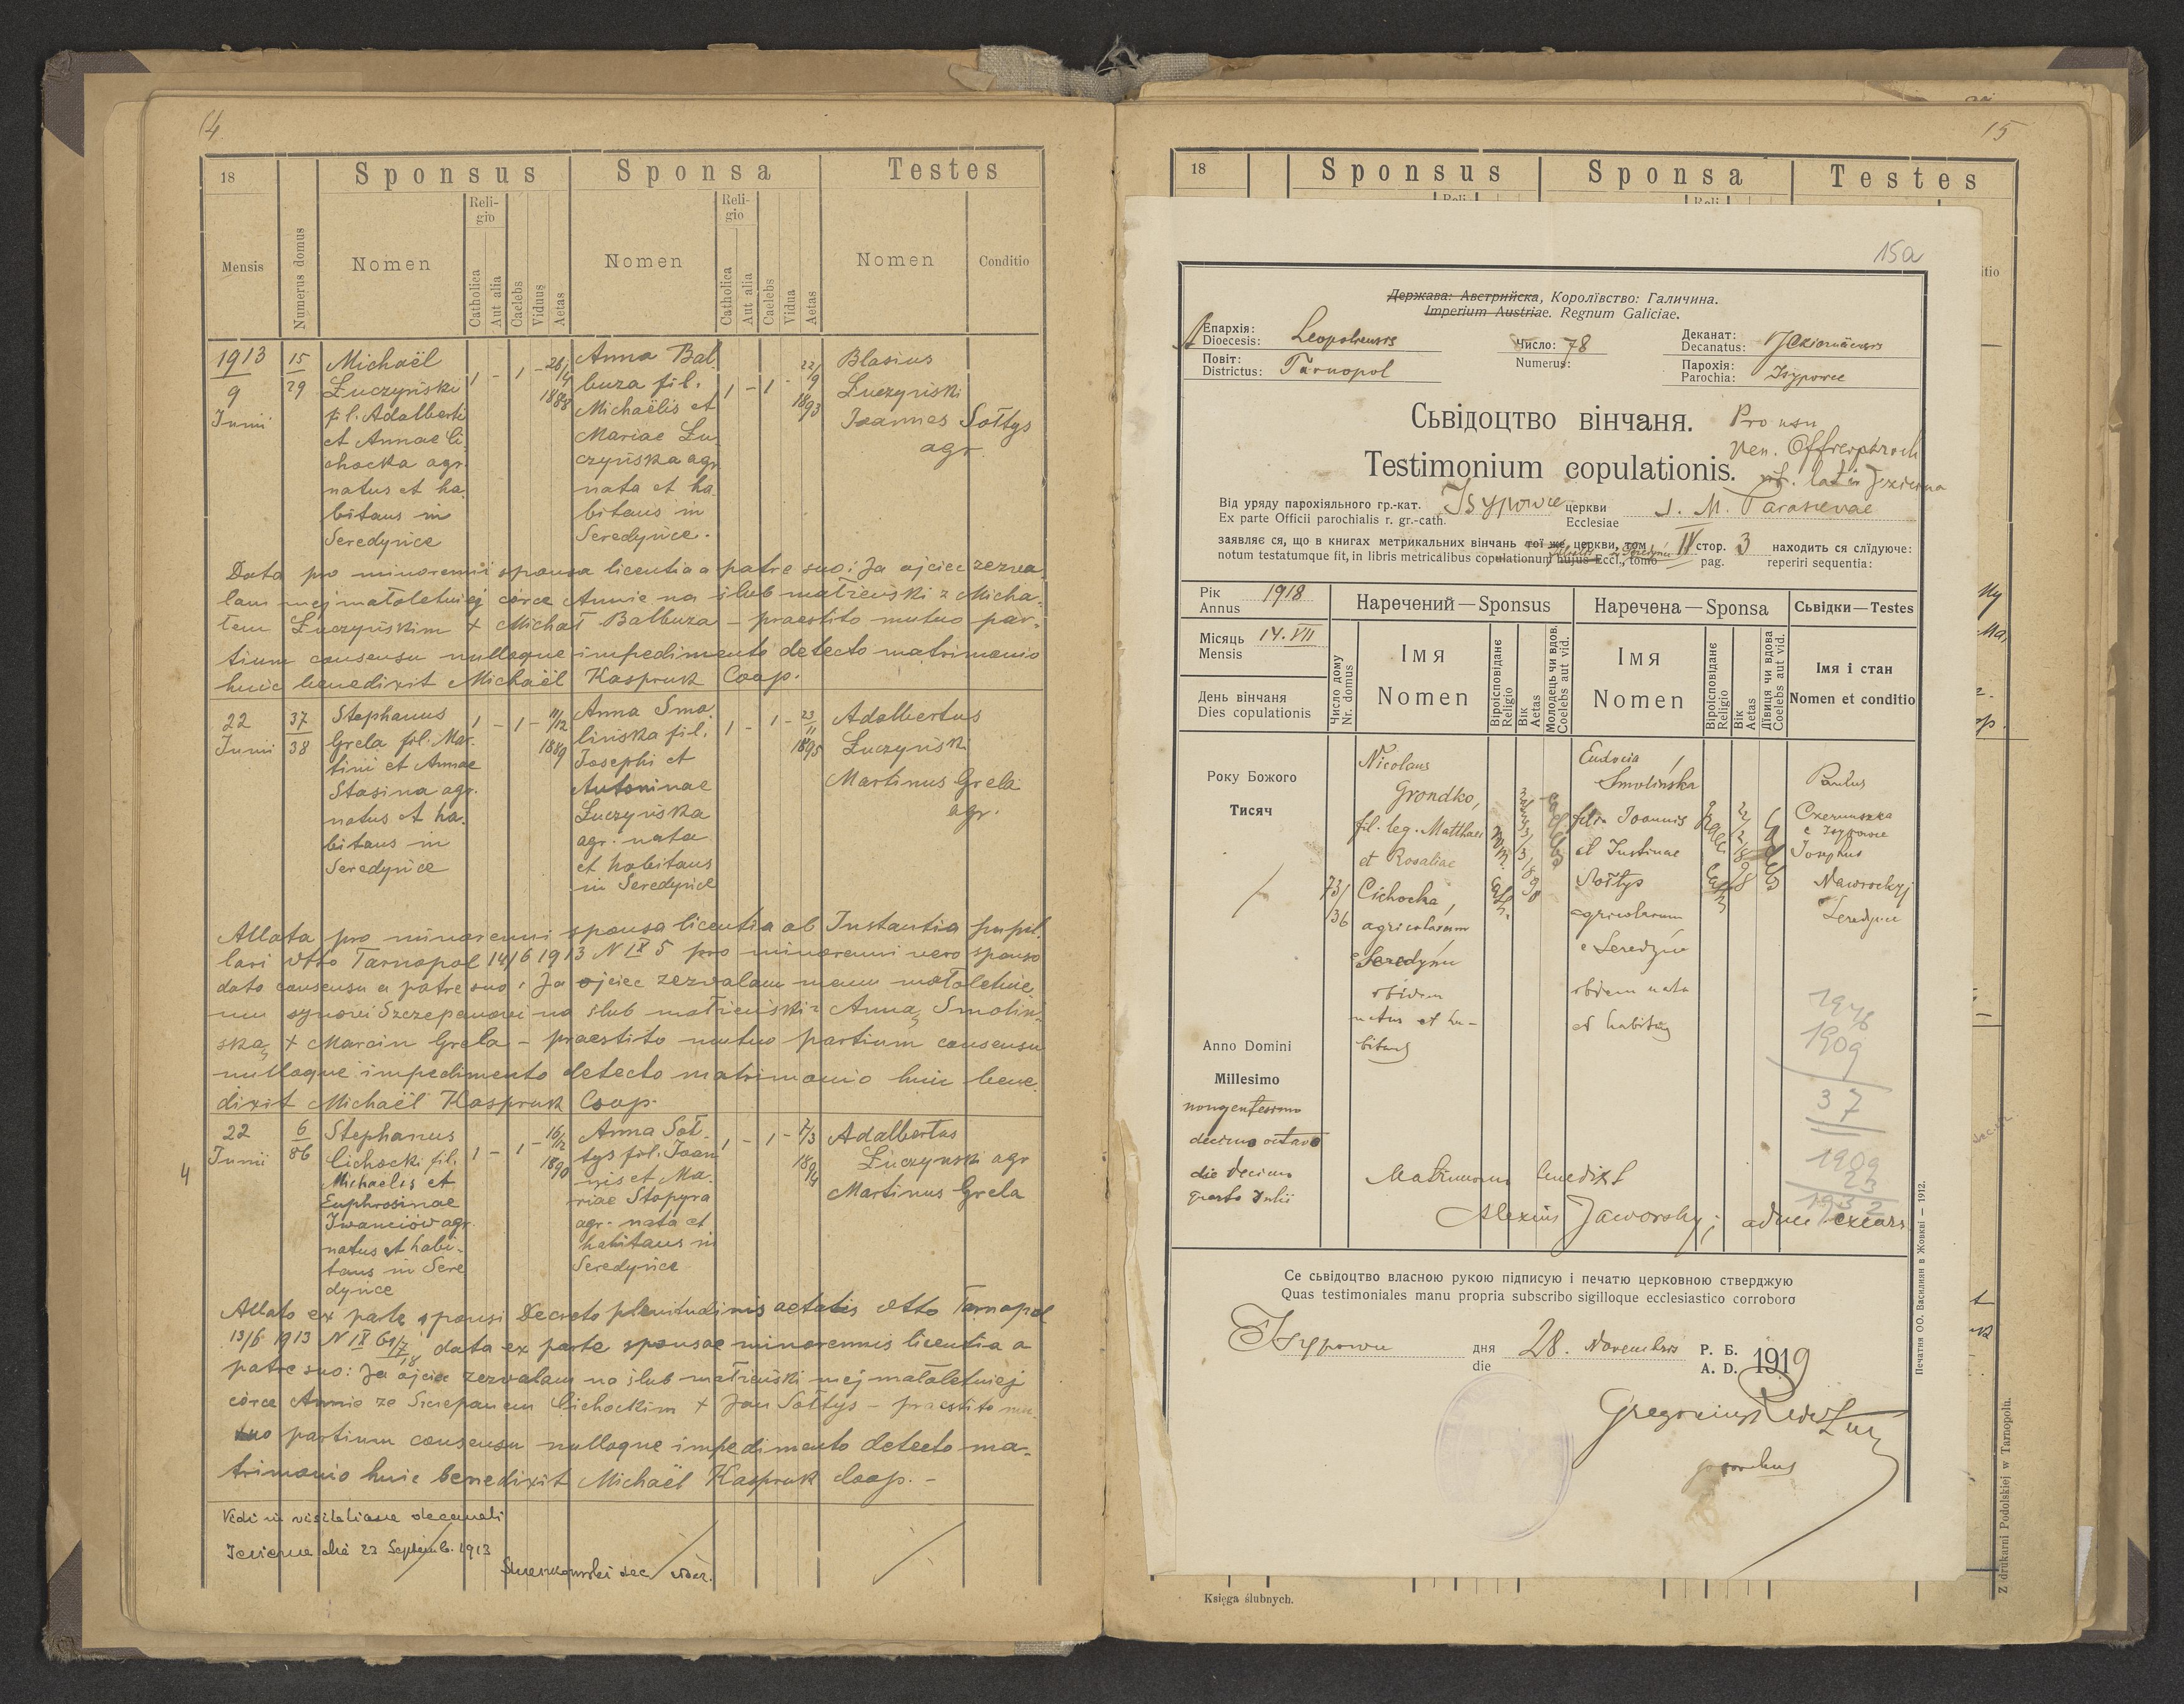 14
18
Sponsus
Sponsa
Testes
Mensis
Numerus domus
Nomen
Religio
Catholica
Aut alia
Caelebs
Viduus
Aetas
Nomen
Religio
Catholica
Aut alia
Caelebs
Vidua
Aetas
Nomen
Conditio
1913
9
Junii
15
29
Michaël
Łuczyński
fil. Adalberti
et Annae Ci-
chocka agr.
natus et ha-
bitans in
Seredyńce
1 - 1 -
28/4
1888
Anna Bal-
buza fil.
Michaëlis et
Mariae Łu-
czyńska agr.
nata et ha-
bitans in
Seredyńce.
1 - 1 -
22/9
1893
Blasius
Łuczyński
Joannes Sołtys
agr.
Data pro minorenni sponsa licentia a patre suo: Ja ojciec zezwa-
lam mej małoletniej córce Annie na ślub małżeński z Micha-
łem Łuczyńskim + Michał Balbuza – praestito mutuo par-
tium consensu nulloque impedimento detecto matrimonio
huic benedixit Michaël Kaspruk Coop.
22
Junii
37
38
Stephanus
Grela fil. Mar-
tini et Annae
Stasina agr.
natus et ha-
bitans in
Seredyńce
1 - 1 -
11/12
1889
Anna Smo-
lińska fil.
Josephi et
Antoninae
Łuczyńska
agr. nata
et habitans
in Seredyńce
1 - 1 -
23/11
1895
Adalbertus
Łuczyński
Martinus Grela
agr.
Allata pro minorenni sponsa licentia ab Instantia pupil-
lari dtto Tarnopol 14/6 1913 N IX 5 pro minorenni vero sponso
dato consensu a patre suo: Ja ojciec zezwalam memu małoletnie-
mu synowi Szczepanowi na ślub małżeński z Anną Smoliń-
ską + Marcin Grela – praestito mutuo partium consensu
nulloque impedimento detecto matrimonio huic bene-
dixit Michaël Kaspruk Coop.
4
22
Junii
6
86
Stephanus
Cichocki fil.
Michaelis et
Euphrosinae
Iwanciów agr.
natus et habi-
tans in Sere-
dyńce
1 - 1 -
16/12
1890
Anna Soł-
tys fil. Joan-
nis et Ma-
riae Stopyra
agr. nata et
habitans in
Seredyńce
1 - 1 -
7/3
1894
Adalbertus
Łuczyński agr
Martinus Grela
Allato ex parte sponsi Decreto plenitudinis aetatis dtto Tarnopol
13/6 1913 N IX 61/7 18, data ex parte sponsae minorennis licentia a
patre suo: Ja ojciec zezwalam na ślub małżeński mej małoletniej
córce Annie ze Szczepanem Cichockim + Jan Sołtys – praestito mu-
tuo partium consensu nulloque impedimento detecto ma-
trimonio huic benedixit Michaël Kaspruk Coop. –
Vidi in visitatione decanali
Jezierna die 23 Septemb. 1913
15
18
Sponsus
Sponsa
Testes
15a
Держава: Австрийска, Королївство: Галичина.
Imperium Austriae. Regnum Galiciae.
Епархія:
Dioecesis:
Leopoliensis
Повіт:
Districtus:
Tarnopol
Число: 78
Numerus:
Деканат:
Decanatus:
Парохія:
Parochia:
Isypowce
Сьвідоцтво вінчаня.
Testimonium copulationis.
Pro usu
Ven. Offici paroch
rit. lat. in Jezierna
Від уряду парохіяльного гр.-кат.
Ex parte Officii parochialis r. gr.-cath.
Isypowce
церкви
Ecclesiae
S. M. Parascevae
заявляє ся, що в книгах метрикальних вінчань тої же церкви, том
notum testatumque fit, in libris metricalibus copulationum hujus Eccl., tomo
IV
стор.
pag.
3
находить ся слїдуюче:
reperiri sequentia:
Рік
Annus
1918
Місяць
Mensis
14. VII
День вінчаня
Dies copulationis
Число дому
Nr. domus
Наречений — Sponsus
Імя
Nomen
Віроісповіданє
Religio
Вік
Aetas
Молодець чи вдов.
Coelebs aut vid.
Наречена — Sponsa
Імя
Nomen
Віроісповіданє
Religio
Вік
Aetas
Дївиця чи вдова
Coelebs aut vid.
Сьвідки — Testes
Імя і стан
Nomen et conditio
Року Божого
Тисяч
Anno Domini
Millesimo
nongentesimo
decimo octavo
die decimo
quarto Julii
73/
/36
Nicolaus
Grondko,
fil. leg. Matthaei
et Rosaliae
Cichocka,
agricolarum
e Seredyńce
ibidem
natus et ha-
bitans
Eudocia
Smolińska
filia Joannis
et Justinae
Sołtys
agricolarum
e Seredyńce
ibidem nata
et habitans
Paulus
Czerniuszka
e Isypowce
Josephus
Nawrockyj
Seredyńce
1946
1909
37
1909
23
1932
Matrimonium benedixit
Alexius Jaworskyj;
Се сьвідоцтво власною рукою підписую і печатю церковною стверджую
Quas testimoniales manu propria subscribo sigilloque ecclesiastico corroboro
Isypowce
дня
die
28. Novembris
Р. Б.
A. D.
1919
Gregorius
parochus
Печатня ОО. Василиян в Жовкві — 1912.
Księga ślubnych.
Z drukarni Podolskiej w Tarnopolu.